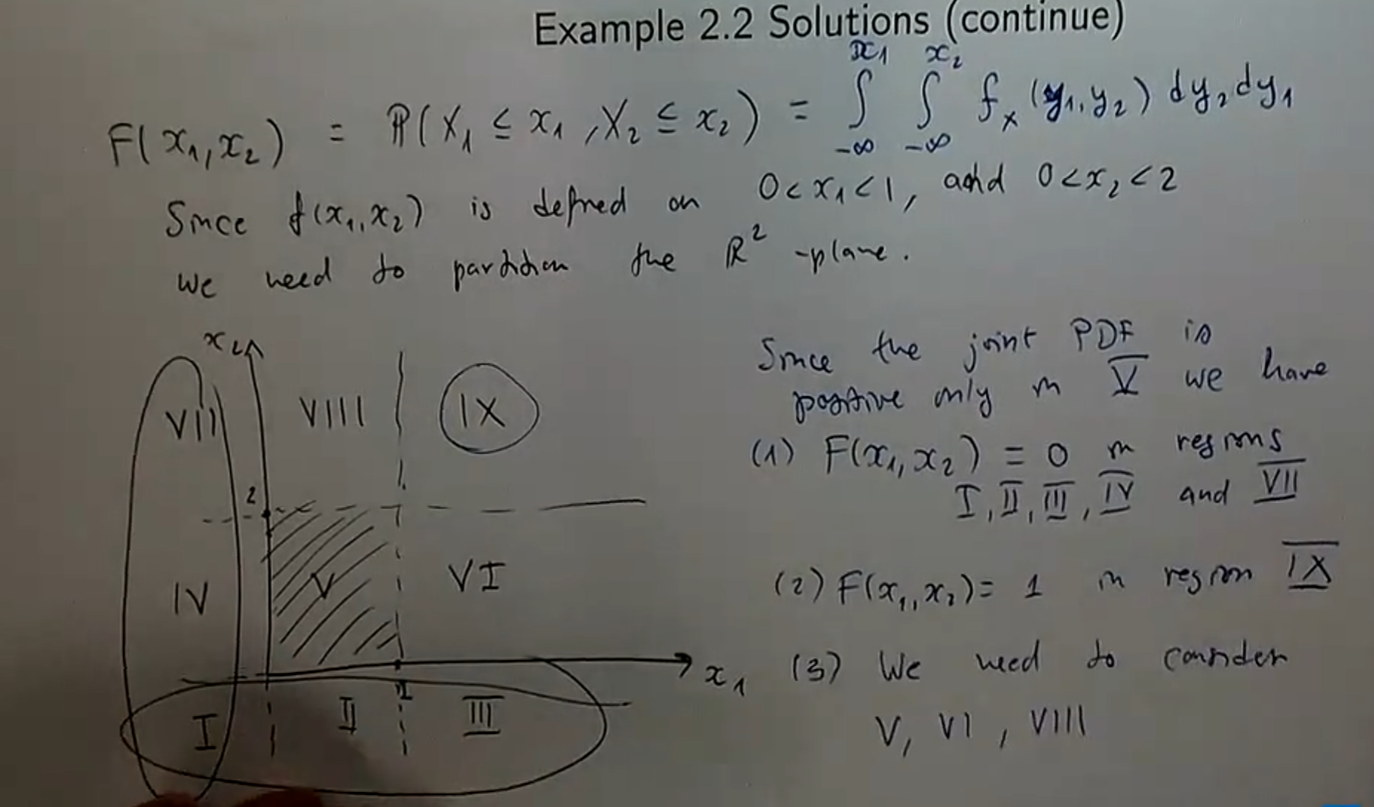 Example 2.2 Solutions (continue)
F(x₁,x₂) = P(X₁ ≤ x₁, X₂ ≤ x₂) = ∫_{-∞}^{x₁} ∫_{-∞}^{x₂} f_X (y₁,y₂) dy₂dy₁
Since f(x₁,x₂) is defined on 0<x₁<1, and 0<x₂<2
we need to partition the ℝ² -plane.
x₂
VII VIII IX
2
IV V VI
x₁
1
I II III
Since the joint PDF is
positive only in V we have
(1) F(x₁,x₂) = 0 in regions
I, II, III, IV and VII
(2) F(x₁,x₂) = 1 in region IX
(3) We need to consider
V, VI, VIII